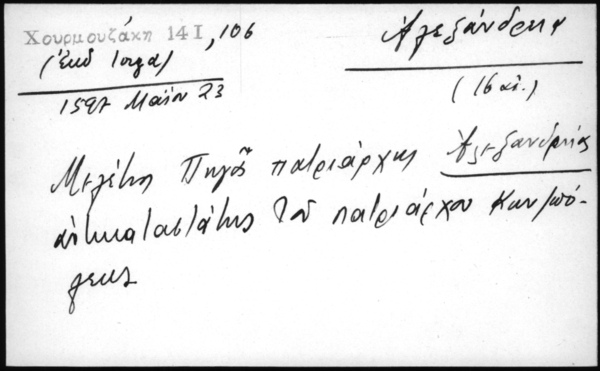 Χουρμουζάκη 14 Ι , 106
(ἔκδ Ἰόργα)
1597 Μαΐου 23
Ἀλεξάνδρεια
(16 αἰ.)
Μελέτιος Πηγᾶς πατριάρχης Ἀλεξανδρείας
ἀντικαταστάτης τοῦ πατριάρχου Κων/πό-
λεως